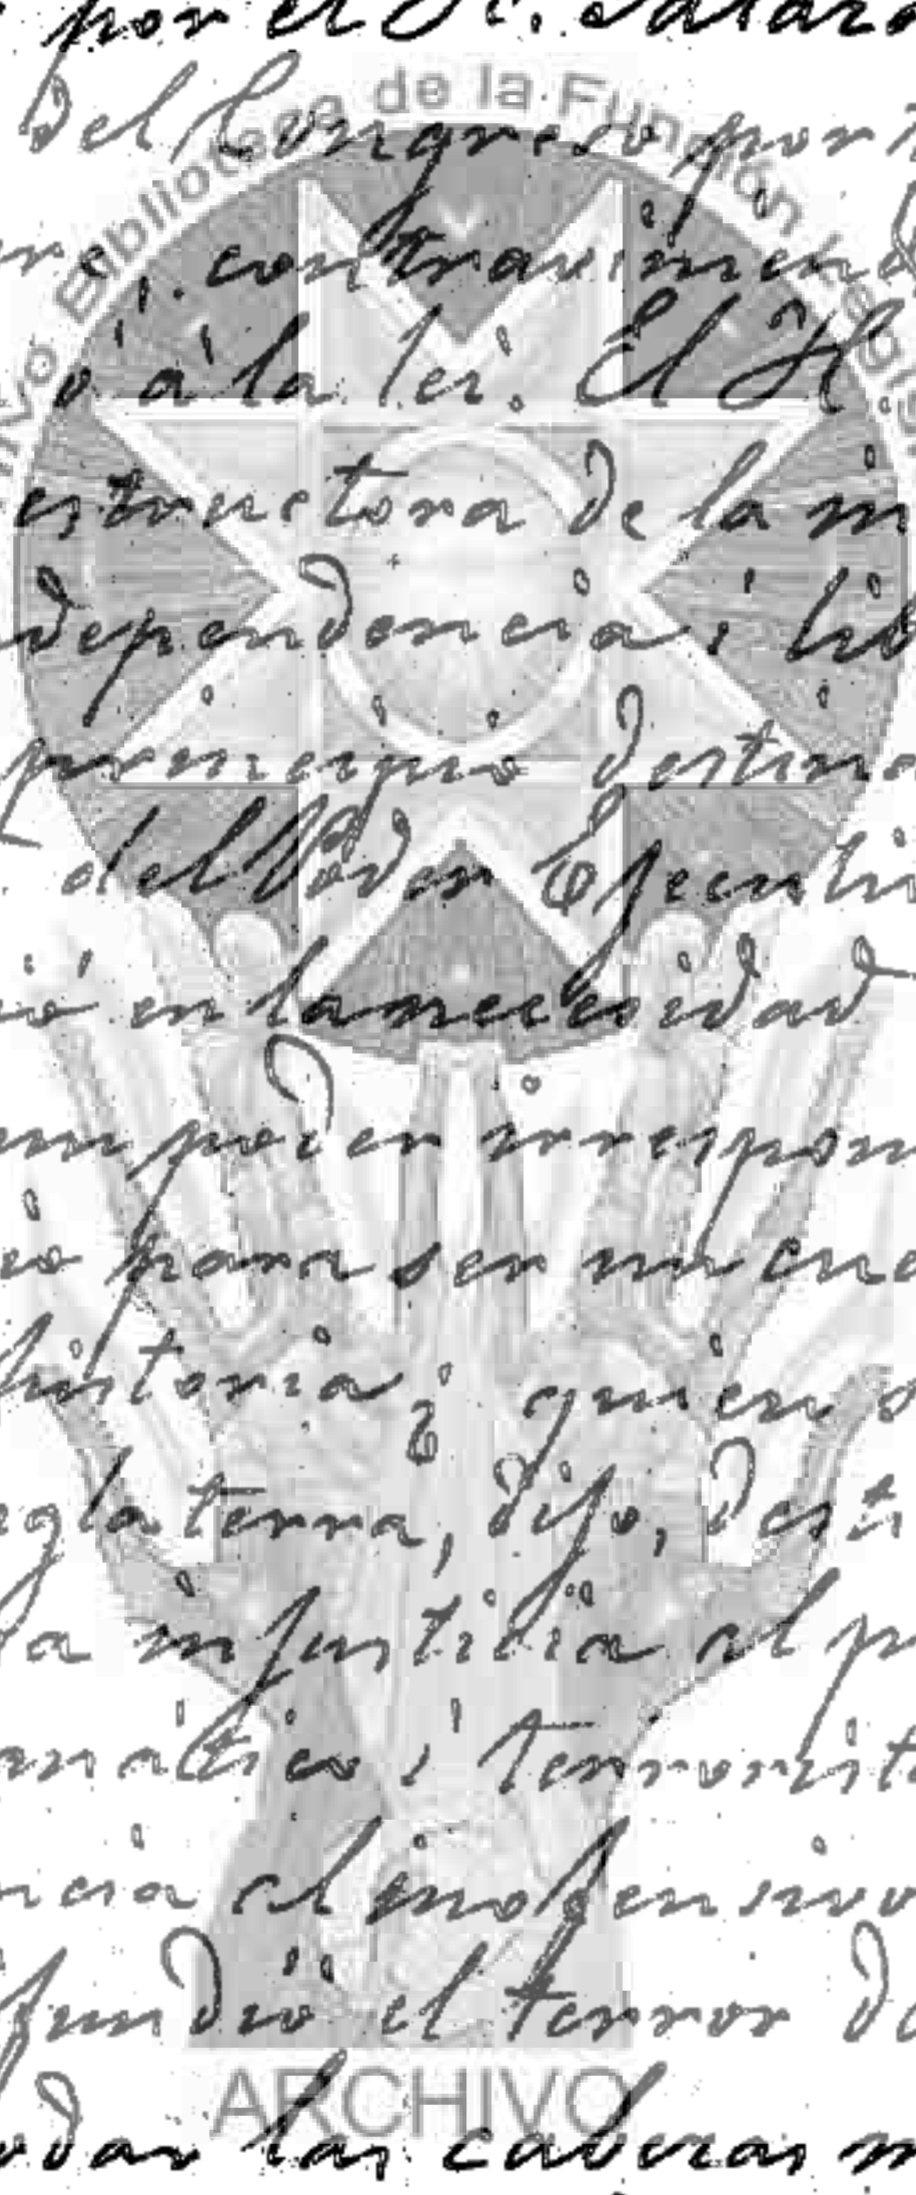 por el H. Salaza
del Congreso por
contraviniend
ó á la lei. El H
estructora de la m
dependencia i lib
principio destina
del Poder Ejecuti
ió en la necesidad
un poder irrespon
para ser un cue
historia; quien
glaterra, dijo, desti
la injusticia al p
anático i terrorist
ncia al inofensivo
fundió el terror
odas las cabezas m
Archivo Biblioteca de la Función Legisl
ARCHIVO